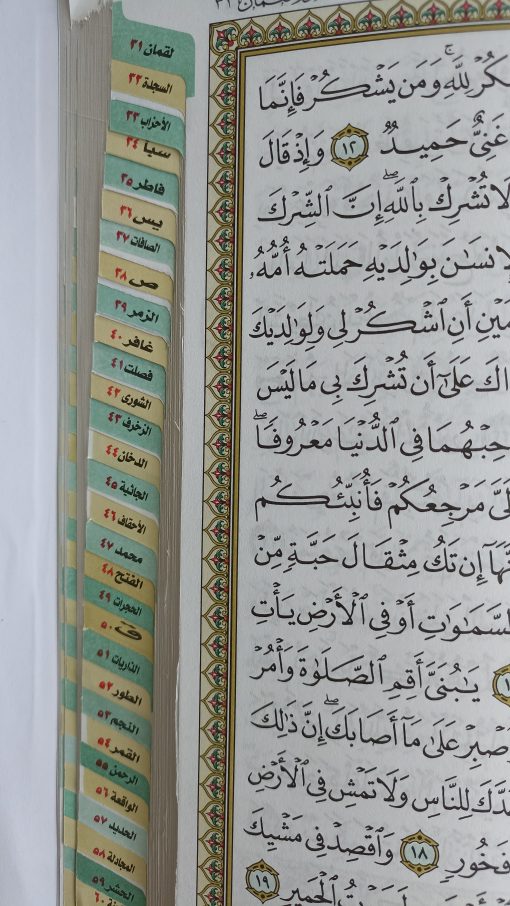 لقمان ٣١
السجدة ٣٢
الأحزاب ٣٣
سبأ ٣٤
فاطر ٣٥
يس ٣٦
الصافات ٣٧
ص ٣٨
الزمر ٣٩
غافر ٤٠
فصلت ٤١
الشورى ٤٢
الزخرف ٤٣
الدخان ٤٤
الجاثية ٤٥
الأحقاف ٤٦
محمد ٤٧
الفتح ٤٨
الحجرات ٤٩
ق ٥٠
الذاريات ٥١
الطور ٥٢
النجم ٥٣
القمر ٥٤
الرحمن ٥٥
الواقعة ٥٦
الحديد ٥٧
المجادلة ٥٨
الحشر ٥٩
٦٠
لِلَّهِۚ وَمَن يَشۡكُرۡ فَإِنَّمَا
غَنِيٌّ حَمِيدٞ ١٢ وَإِذۡ قَالَ
لَا تُشۡرِكۡ بِٱللَّهِۖ إِنَّ ٱلشِّرۡكَ
بِوَٰلِدَيۡهِ حَمَلَتۡهُ أُمُّهُۥ
أَنِ ٱشۡكُرۡ لِي وَلِوَٰلِدَيۡكَ
عَلَىٰٓ أَن تُشۡرِكَ بِي مَا لَيۡسَ
فِي ٱلدُّنۡيَا مَعۡرُوفٗاۖ
مَرۡجِعُكُمۡ فَأُنَبِّئُكُم
إِن تَكُ مِثۡقَالَ حَبَّةٖ مِّنۡ
ٱلسَّمَٰوَٰتِ أَوۡ فِي ٱلۡأَرۡضِ يَأۡتِ
يَٰبُنَيَّ أَقِمِ ٱلصَّلَوٰةَ وَأۡمُرۡ
وَٱصۡبِرۡ عَلَىٰ مَآ أَصَابَكَۖ إِنَّ ذَٰلِكَ
لِلنَّاسِ وَلَا تَمۡشِ فِي ٱلۡأَرۡضِ
فَخُورٖ ١٨ وَٱقۡصِدۡ فِي مَشۡيِكَ
ٱلۡحَمِيرِ ١٩